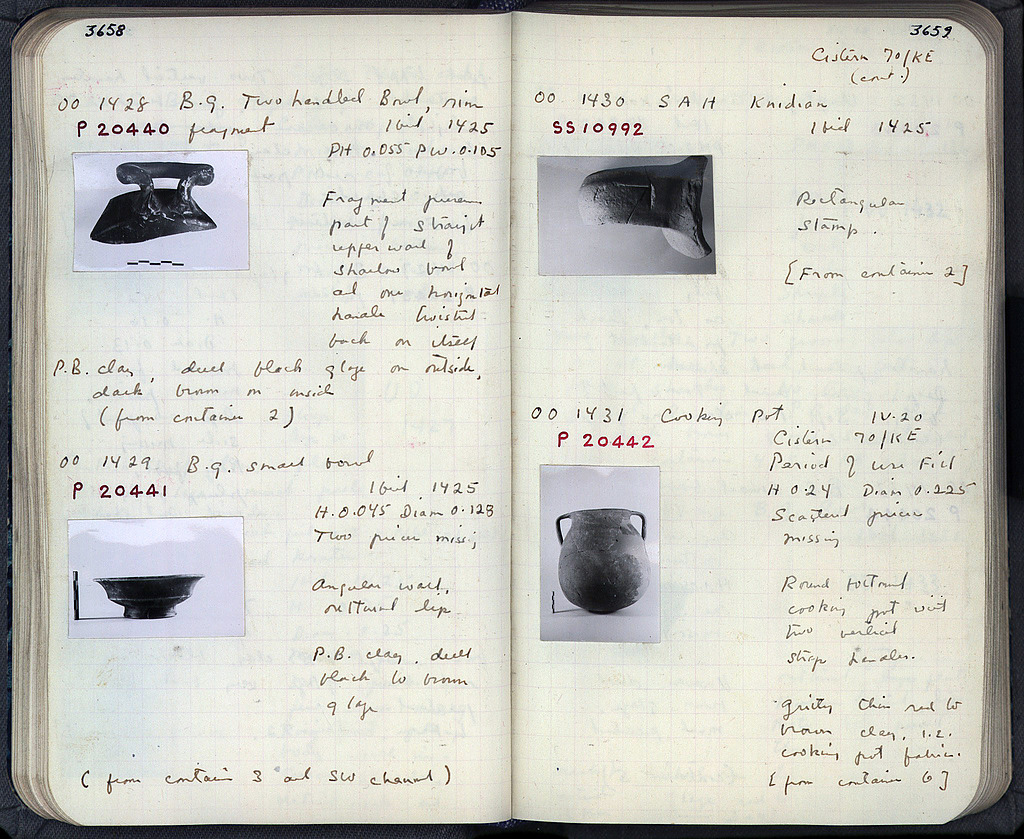 3658
OO 1428 B.g. Two handled Bowl, rim
P 20440 fragment Ibid 1425
PH 0.055 PW. 0.105
Fragment preserves
part of straight
upper wall of
shallow bowl
and one horizontal
handle twisted
back on itself
P.B. clay, dull black glaze on outside,
dark brown on inside
(from container 2)
OO 1429 B.g. small bowl
P 20441 Ibid, 1425
H. 0.045 Diam 0.128
Two pieces missing
Angular wall,
outturned lip.
P.B. clay, dull
black to brown
glaze
(from container 3 and SW channel)
3659
Cistern 70/KE
(cont.)
OO 1430 SAH Knidian
SS 10992 Ibid 1425
Rectangular
stamp.
[From container 2]
OO 1431 Cooking Pot IV-20
P 20442 Cistern 70/KE
Period of Use Fill
H 0.24 Diam 0.225
Scattered pieces
missing
Round bottomed
cooking pot with
two vertical
strap handles.
Gritty thin red to
brown clay, i.e.
cooking pot fabric.
[from container 6]